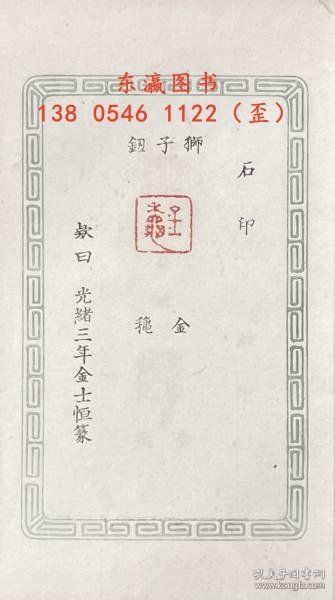 东瀛图书
138 0546 1122（歪）
石印
獅子鈕
金龝
欵曰 光緒三年金士恒篆
孔夫子旧书网